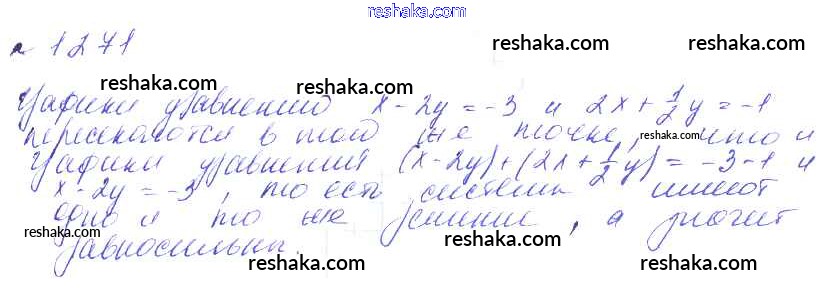 reshaka.com
№ 1271
reshaka.com
reshaka.com
reshaka.com
Графики уравнений x - 2y = -3 и 2x + 1/2 y = -1
пересекаются в той же точке, что и
reshaka.com
графики уравнений (x - 2y) + (2x + 1/2 y) = -3 - 1 и
x - 2y = -3, то есть системы имеют
reshaka.com
reshaka.com
одно и то же решение, а значит
reshaka.com
reshaka.com
reshaka.com
равносильны.
reshaka.com
reshaka.com